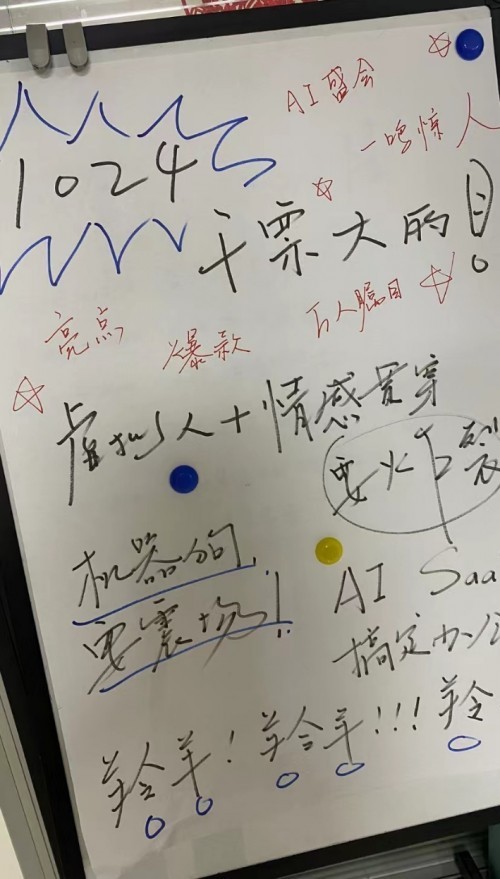 AI盛会
一鸣惊人
1024
干票大的!
亮点
爆款
万人瞩目
虚拟人+情感贯穿
要火
裂
机器狗
要震场!
AI Saa
搞定办公
羚羊!羚羊!!!羚